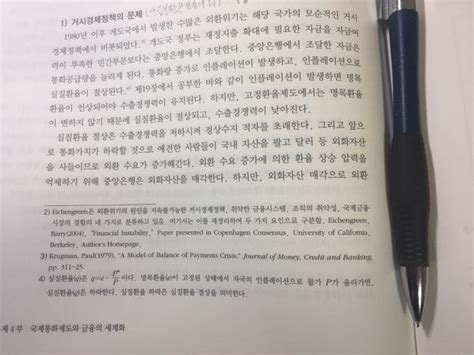 1) 거시경제정책의 문제
1980년 이후 개도국에서 발생한 수많은 외환위기는 해당 국가의 모순적인 거시
경제정책에서 비롯되었다.³⁾ 개도국 정부는 재정지출 확대에 필요한 자금을 자금여
력이 부족한 민간부문보다는 중앙은행에서 조달한다. 중앙은행에서 조달한 자금은
통화공급량을 늘리게 된다. 통화량 증가로 인플레이션이 발생하고, 인플레이션으로
실질환율이 절상된다.⁴⁾ 제19장에서 공부한 바와 같이 인플레이션이 발생하면 명목환
율이 인상되어야 수출경쟁력이 유지된다. 하지만, 고정환율제도에서는 명목환율
이 변하지 않기 때문에 실질환율이 절상되고, 수출경쟁력이 낮아진다.
실질환율 절상은 수출경쟁력을 저하시켜 경상수지 적자를 초래한다. 그리고 앞으
로 통화가치가 하락할 것으로 예견한 사람들이 국내 자산을 팔고 달러 등 외화자산
을 사들이므로 외환 수요가 증가해간다. 외환 수요 증가에 의한 환율 상승 압력을
억제하기 위해 중앙은행은 외화자산을 매각한다. 하지만, 외화자산 매각으로 외환
2) Eichengreen은 외환위기의 원인을 지속불가능한 거시경제정책, 취약한 금융시스템, 조직의 취약성, 국제금융
시장의 결함의 네 가지로 분류하고 있음. 여기서는 이를 재정리하여 두 가지 요인으로 구분함. Eichengreen,
Barry(2004), "Financial Instability," Paper presented in Copenhagen Consensus, University of California,
Berkeley, Author's Homepage.
3) Krugman, Paul(1979), "A Model of Balance of Payments Crisis," Journal of Money, Credit and Banking,
pp. 311-25.
4) 실질환율(q)은 이다. 명목환율(e)이 고정된 상태에서 자국의 인플레이션으로 물가 P가 올라가면,
실질환율(q)은 하락한다. 실질환율 하락은 실질환율 절상을 의미한다.
제4부 국제통화제도와 금융의 세계화